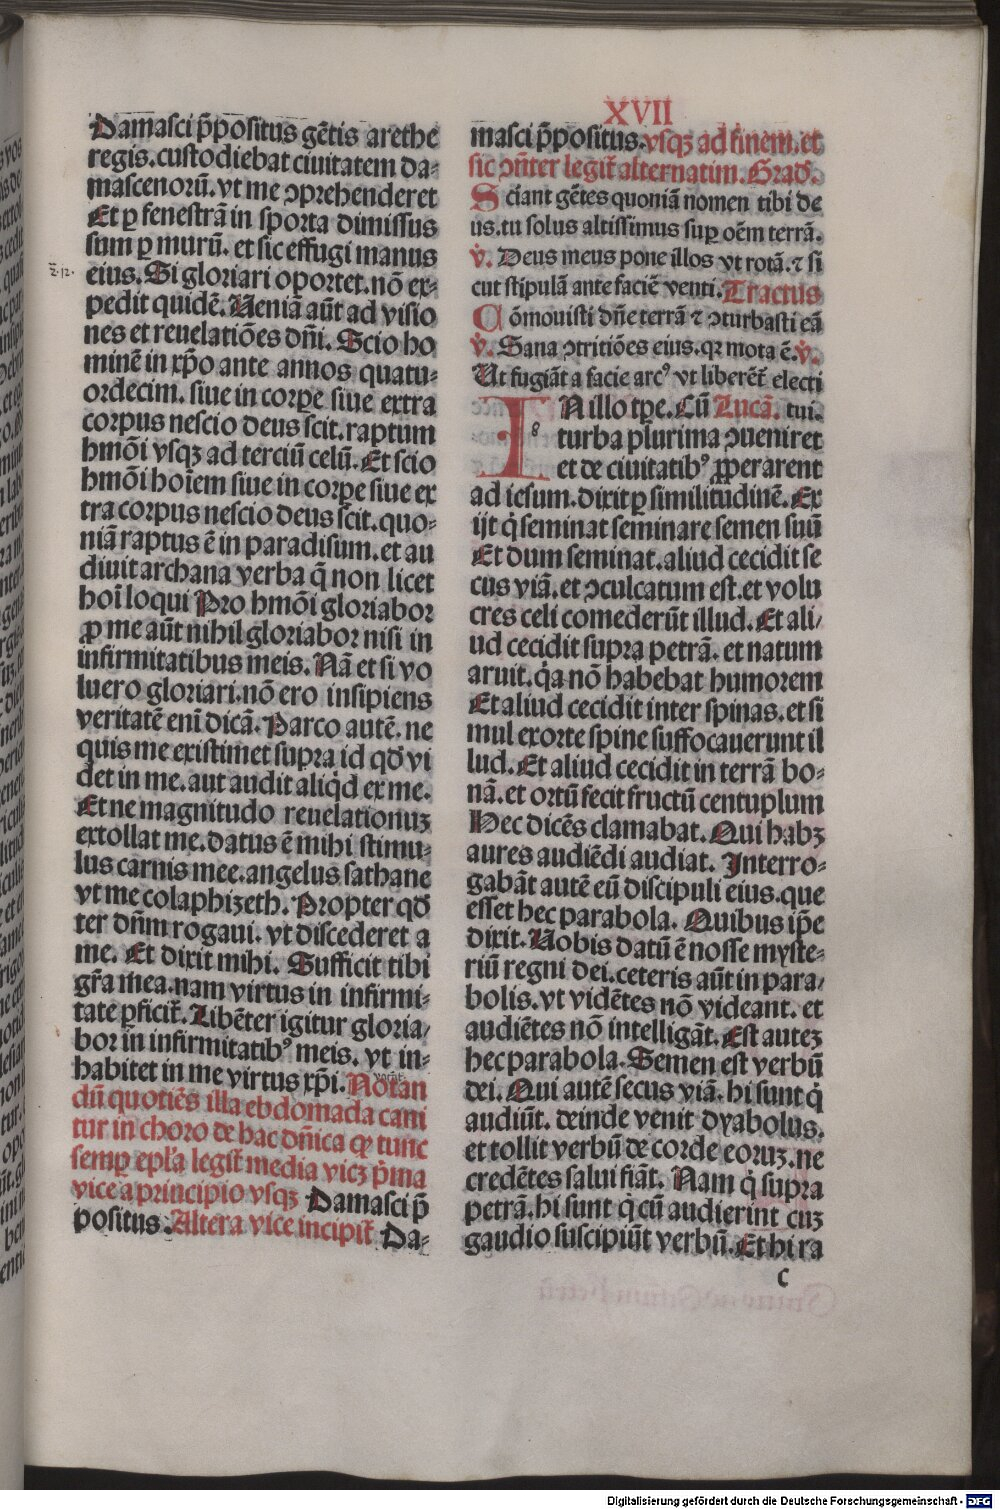 XVII
Damasci p̄positus gētis arethe
regis.custodiebat ciuitatem da⸗
mascenorū.vt me ↄprehenderet
Et ꝑ fenestrā in sporta dimissus
sum ꝑ murū. et sic effugi manus
eius. Si gloriari oportet.nō ex⸗
pedit quidē. Ueniā aūt ad visio
nes et reuelatiōes dn̄i. Scio ho
minē in xp̄o ante annos quatu⸗
ordecim. siue in corꝑe siue extra
corpus nescio deus scit.raptum
hmōi vsqꝫ ad terciū celū. Et scio
hmōi hoīem siue in corꝑe siue ex
tra corpus nescio deus scit.quo⸗
niā raptus ē in paradisum.et au
diuit archana verba q̄ non licet
hoī loqui Pro hmōi gloriabor
ꝓ me aūt nihil gloriabor nisi in
infirmitatibus meis. Nā et si vo
luero gloriari.nō ero insipiens
veritatē enī dicā. Parco autē. ne
quis me existimet supra id qd̄ vi
det in me. aut audit aliq̇d ex me.
Et ne magnitudo reuelationuꝫ
extollat me.datus ē mihi stimu⸗
lus carnis mee.angelus sathane
vt me colaphizeth. Propter qd̄
ter dn̄m rogaui. vt discederet a
me. Et dixit mihi. Sufficit tibi
gr̄a mea.nam virtus in infirmi⸗
tate ꝑficit̄. Libēter igitur gloria/
bor in infirmitatibꝰ meis. vt in⸗
habitet in me virtus xp̄i. Notan
dū quotiēs illa ebdomada cani
tur in choro de hac dn̄ica ꝙ tunc
semꝑ epl̄a legit̄ media vicꝫ p̄ma
vice a principio vsqꝫ Damasci p̄
positus. Altera vice incipit̄ Da⸗
masci p̄positus.vsqꝫ ad finem.et
sic ↄn̄ter legit̄ alternatim. Grad̄.
Sciant gētes quoniā nomen tibi de
us.tu solus altissimus suꝑ oēm terrā.
v̇. Deus meus pone illos vt rotā.⁊ si
cut stipulā ante faciē venti. Tractus
Cōmouisti dn̄e terrā ⁊ ↄturbasti eā
v̇. Sana ↄtritiōes eius.qꝛ mota ē. v̇.
Ut fugiāt a facie arcꝰ vt liberēt̄ electi
IN illo tꝑe. Cū Lucā. tui.
8
turba plurima ↄueniret
et de ciuitatibꝰ ꝓꝑerarent
ad iesum.dixit ꝑ similitudinē. Ex
ijt q̇ seminat seminare semen suū
Et dum seminat.aliud cecidit se
cus viā.et ↄculcatum est.et volu
cres celi comederūt illud. Et ali/
ud cecidit supra petrā. et natum
aruit.q̇a nō habebat humorem
Et aliud cecidit inter spinas.et si
mul exorte spine suffocauerunt il
lud. Et aliud cecidit in terrā bo⸗
nā.et ortū fecit fructū centuplum
Hec dicēs clamabat. Qui habꝫ
aures audiēdi audiat. Interro⸗
gabāt autē eū discipuli eius.que
esset hec parabola. Quibus ip̄e
dixit. Uobis datū ē nosse myste⸗
riū regni dei.ceteris aūt in para/
bolis.vt vidētes nō videant. et
audiētes nō intelligāt. Est auteꝫ
hec parabola. Semen est verbū
dei. Qui autē secus viā. hi sunt q̇
audiūt. deinde venit dyabolus.
et tollit verbū de corde eoruꝫ.ne
credētes salui fiāt. Nam q̇ supra
petrā.hi sunt q̇ cū audierint cuꝫ
gaudio suscipiūt verbū. Et hi ra
c
Digitalisierung gefördert durch die Deutsche Forschungsgemeinschaft - DFG